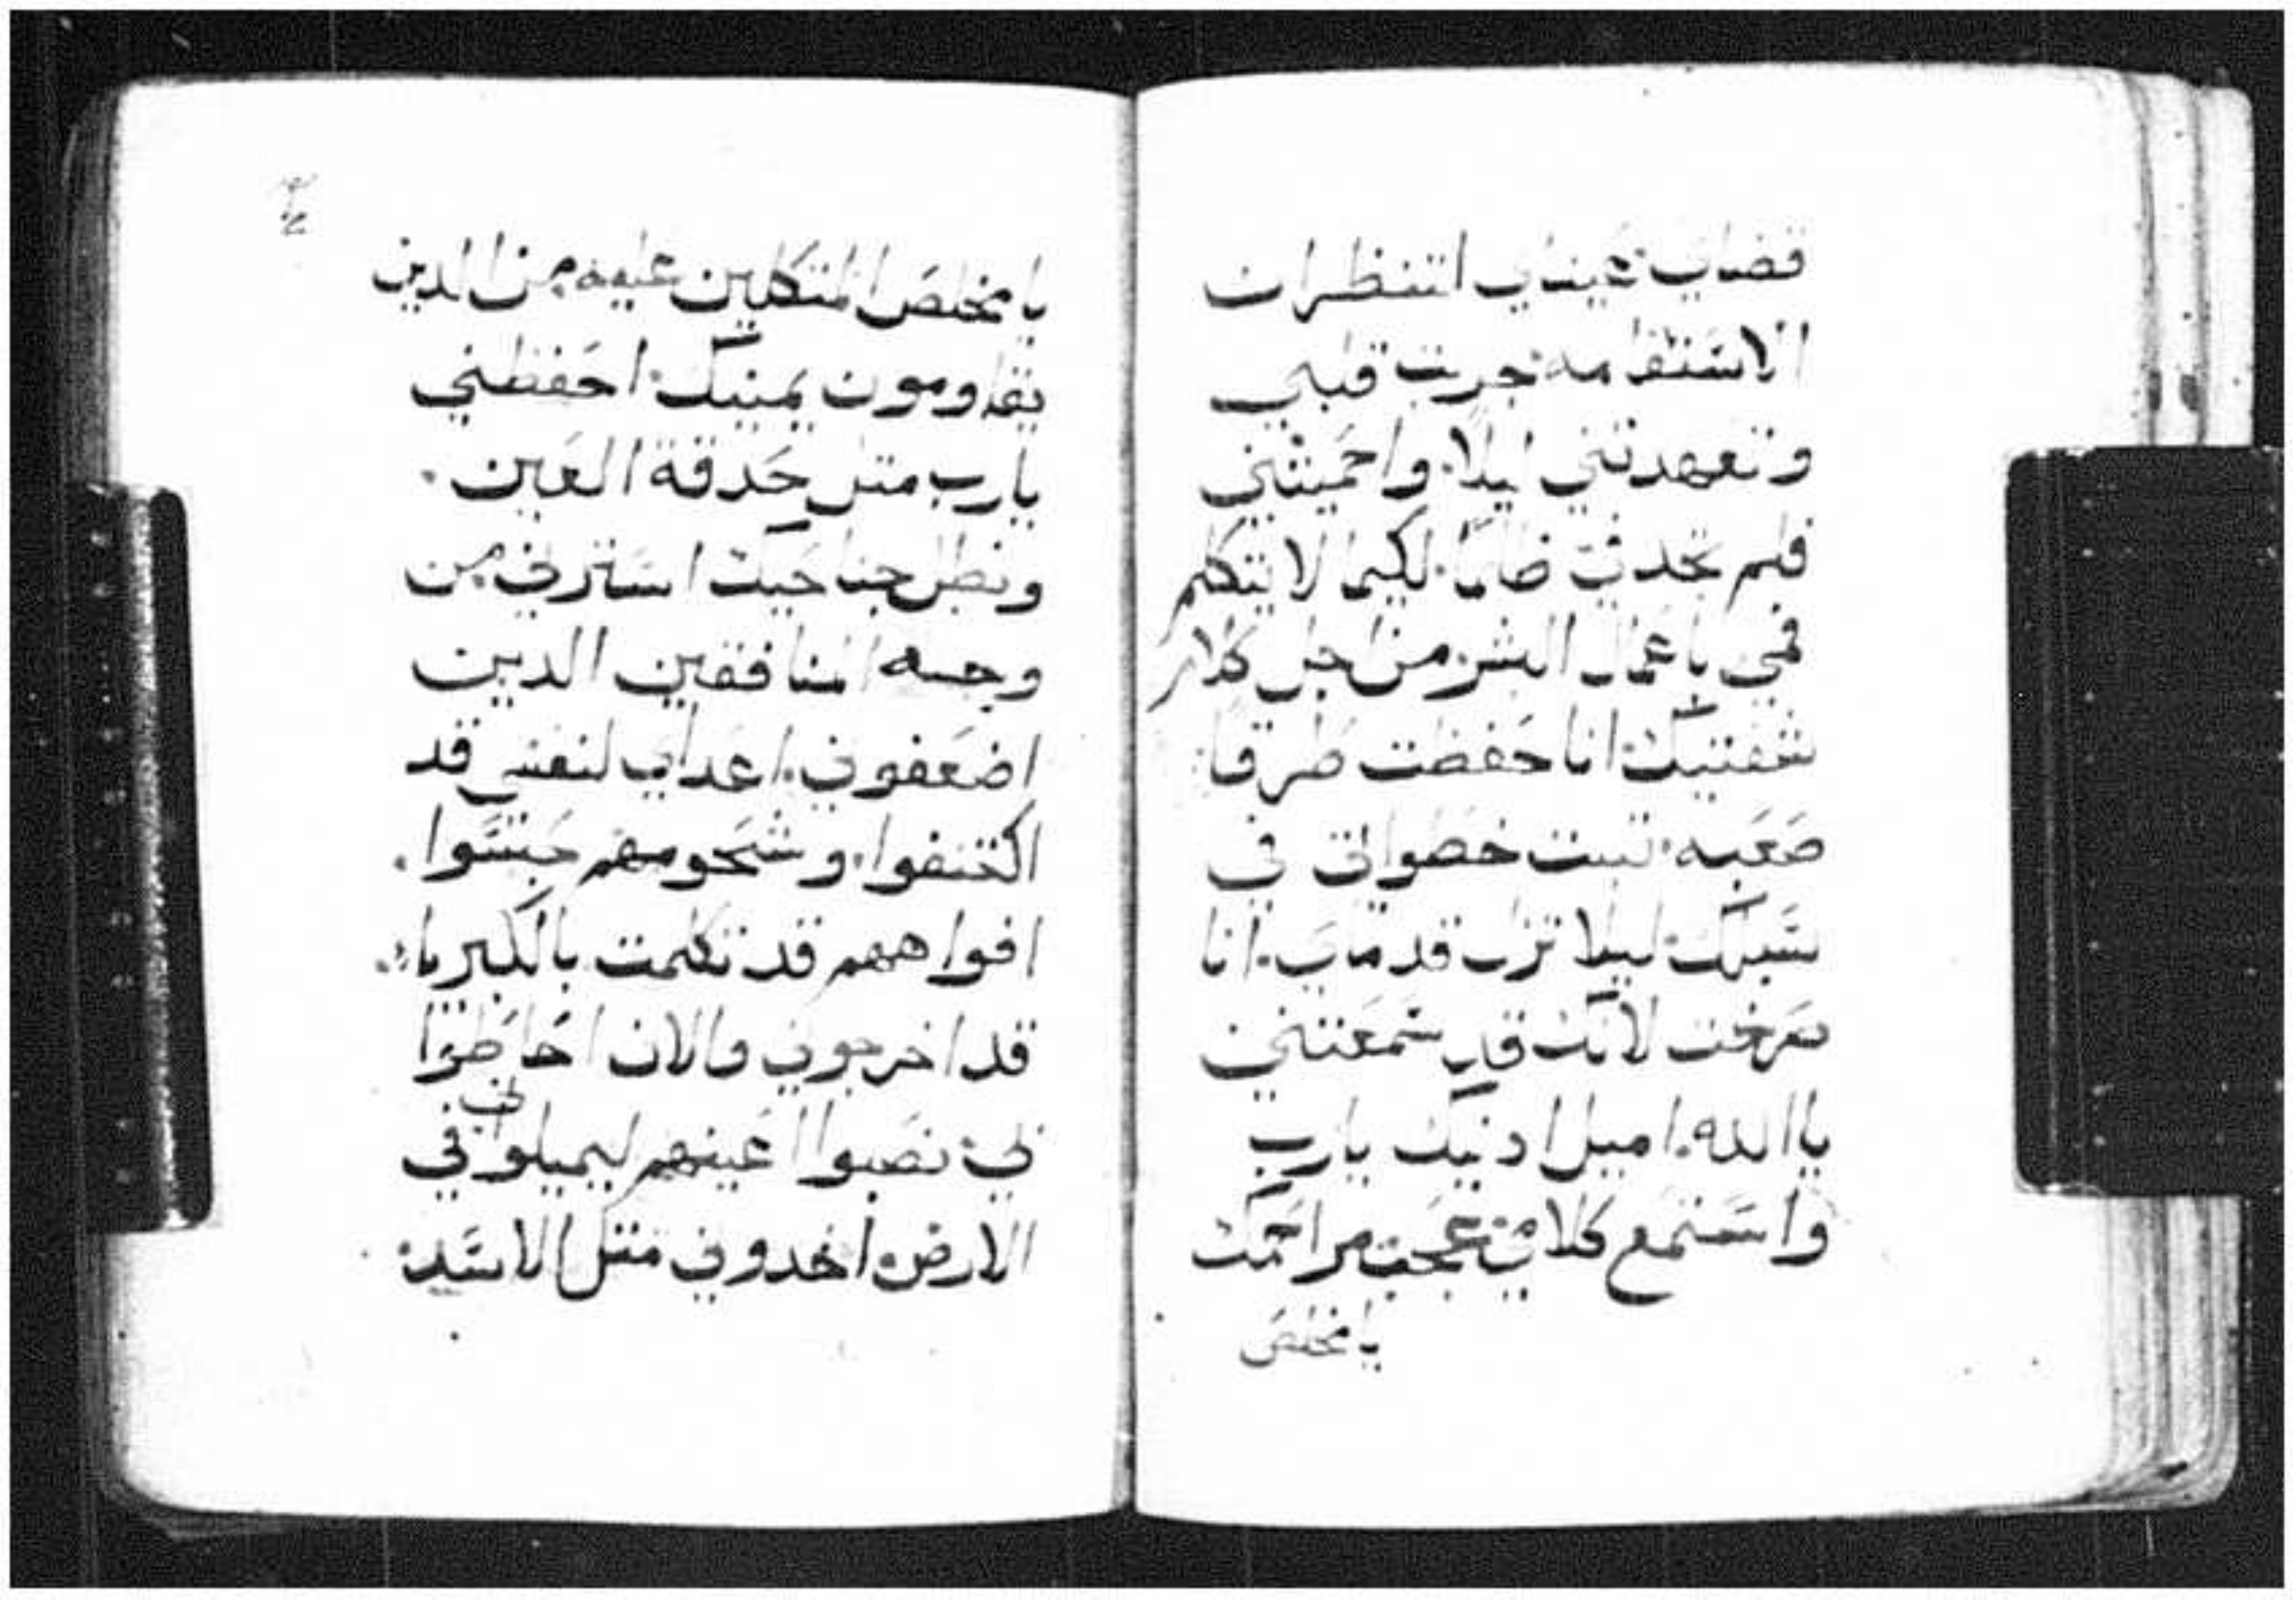 قضاي: عيناي لتنظران
الاستقامه: جربت قلبي
وتعهدتني ليلا. واحميتني
فلم تجد في ظلما. لكيما لا يتكلم
فمي باعمال البشر. من اجل كلام
شفتيك: انا حفظت طرقا
صعبه: تبت خطواتي في
سبلك: ليلا تزل قدماي. انا
صرخت لانك قد سمعتني
يا الله. اميل ادنيك يارب
واستمع كلامي: عجب مراحمك
يا مخلص
يا مخلص المتكلين عليه من الدين
يقاومون يمينك: احفظني
يارب متل حدقة العين.
وبظل جناحيك استرني من
وجه المنافقين الدين
اضعفوني. اعداي لنفسي قد
اكتنفوا. وشحومهم حبسوا.
افواههم قد تكلمت بالكبريا.
قد اخرجوني والان احاطوا
بي: نصبوا اعينهم ليميلوا بي في
الارض. اخدوني متل الاسد: